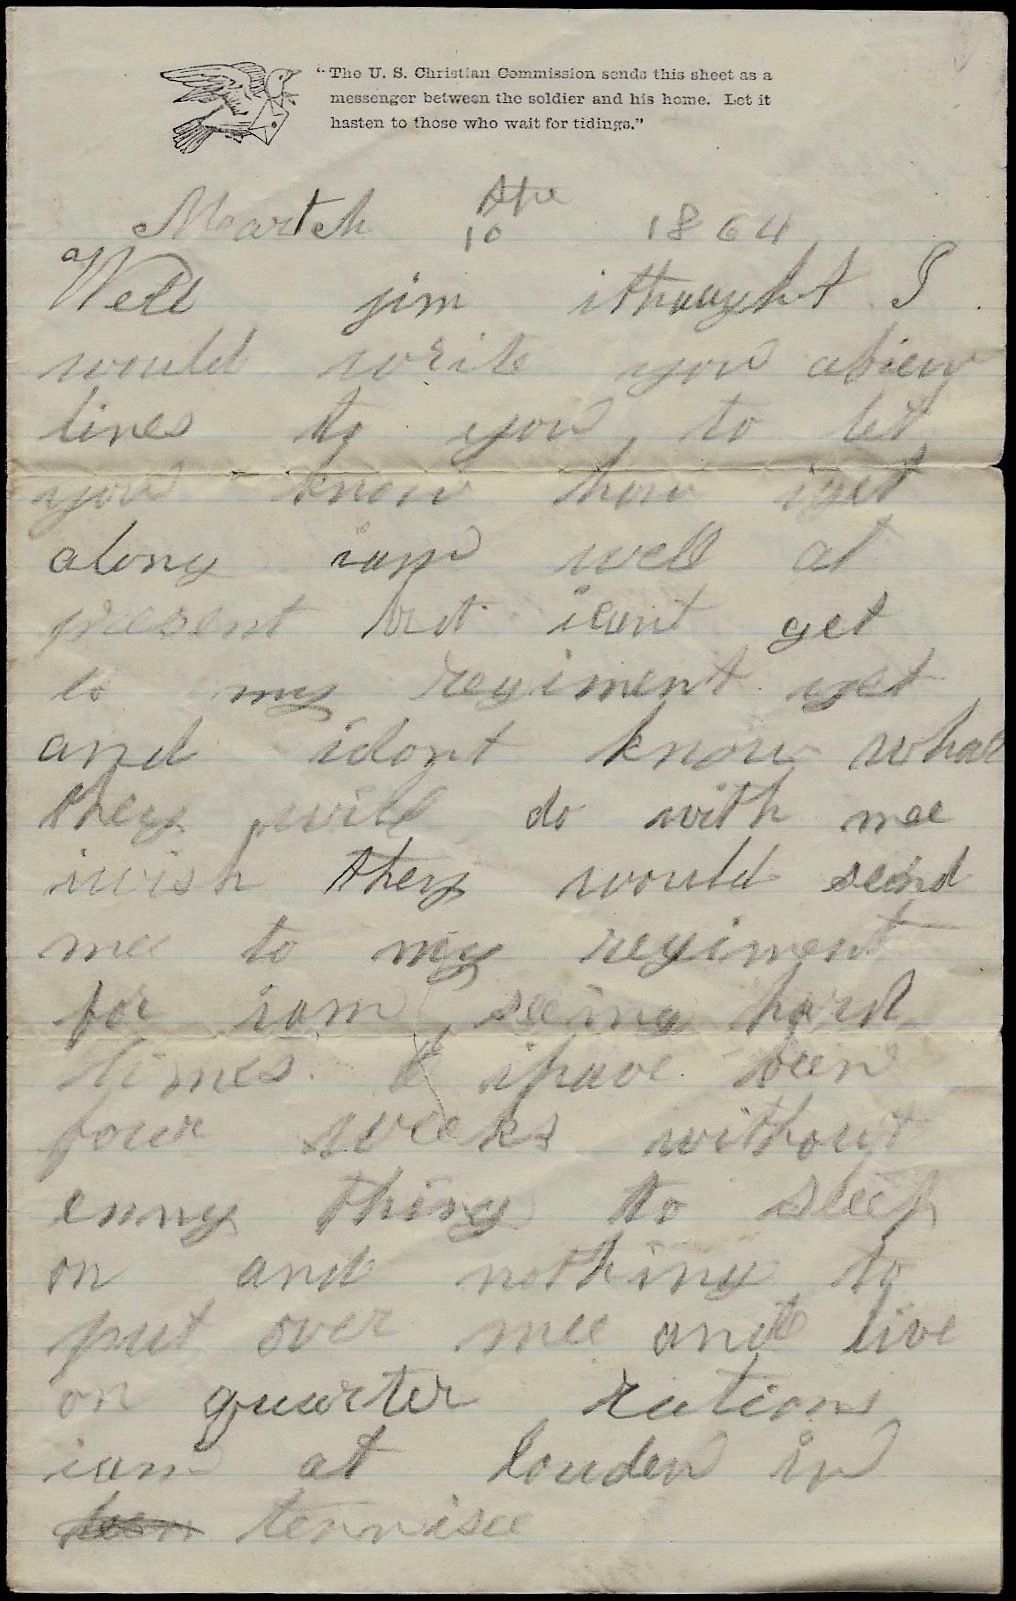 "The U. S. Christian Commission sends this sheet as a
messenger between the soldier and his home. Let it
hasten to those who wait for tidings."
Martch the 10 1864
Well jim ithought I
would write you afiew
lines to you to let
you know how iget
along iam well at
present but icant get
to my regiment yet
and idont know what
they will do with mee
iwish they would seind
mee to my regiment
for iam seeing hard
times ihave been
four weeks without
enny thing to sleep
on and nothing to
put over mee and live
on quarter rations
iam at louden in
tennisee